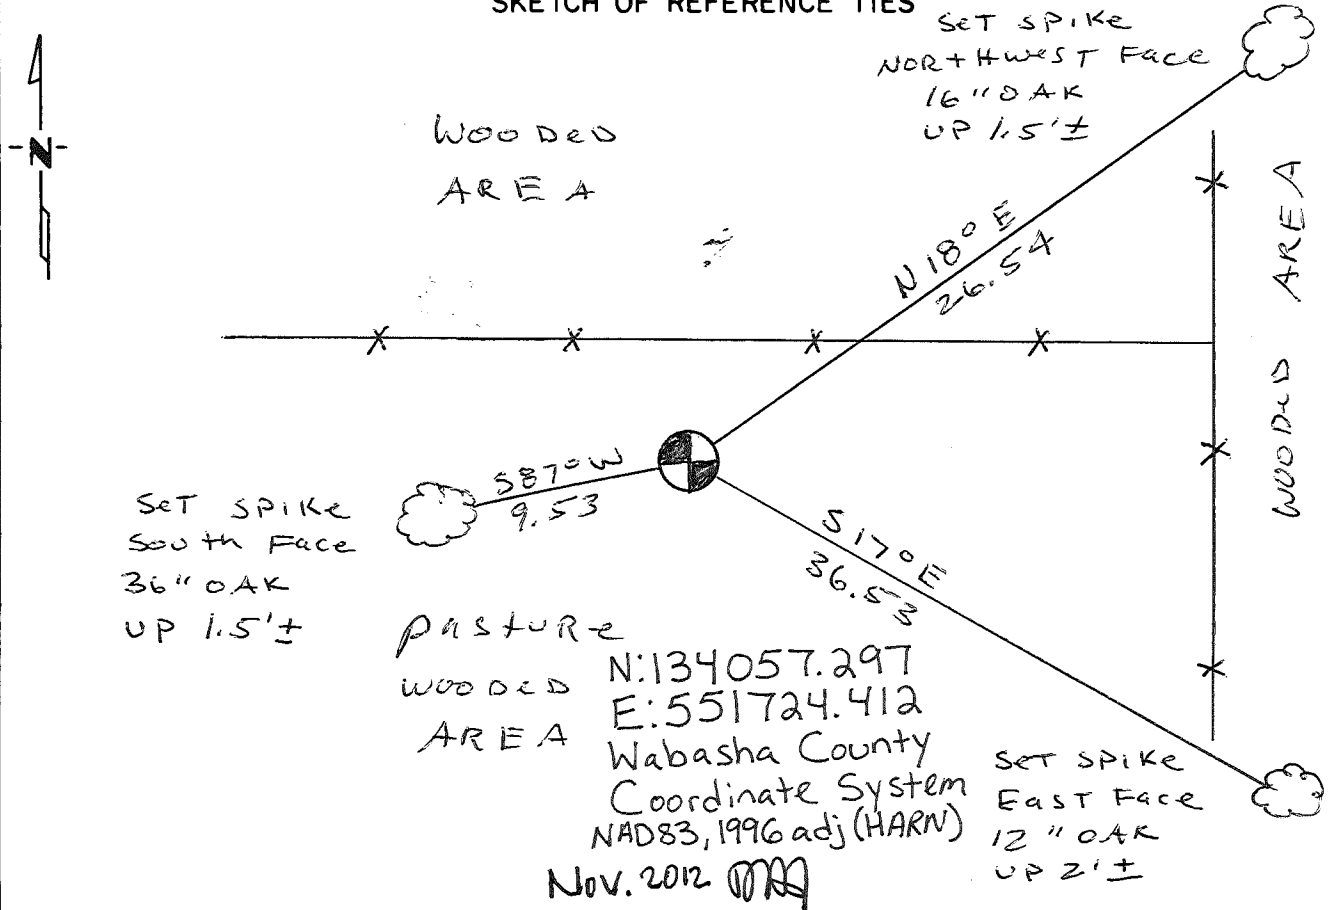 SKETCH OF REFERENCE TIES
SET SPIKE
NORTHWEST FACE
16" OAK
UP 1.5'±
N
WOODED
AREA
N 18° E
26.54
WOODED AREA
S87°W
9.53
SET SPIKE
South Face
36" OAK
UP 1.5'±
S 17° E
36.53
PASTURE
WOODED
AREA
N:134057.297
E:551724.412
Wabasha County
Coordinate System
NAD83, 1996 adj (HARN)
Nov. 2012
SET SPIKE
EAST FACE
12" OAK
UP 2'±